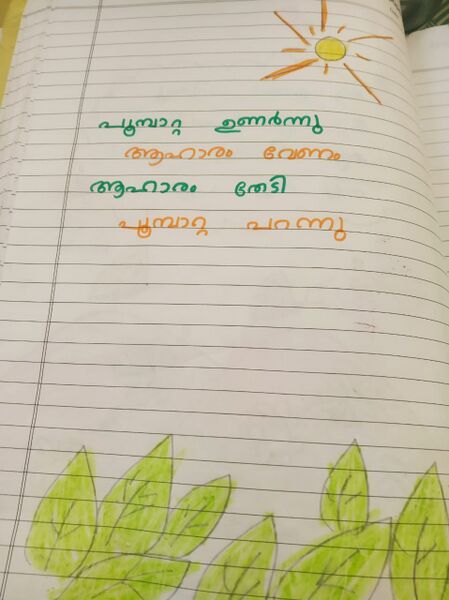 പൂമ്പാറ്റ ഉണർന്നു
ആഹാരം വേണം
ആഹാരം തേടി
പൂമ്പാറ്റ പറന്നു